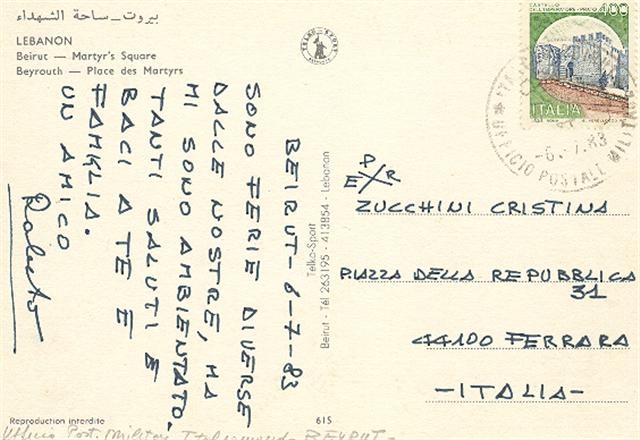 بيروت ـ ساحة الشهداء
LEBANON
Beirut — Martyr's Square
Beyrouth — Place des Martyrs
TELKO - SPORT
BEIRUT - 6-7-83
SONO FERIE DIVERSE
DALLE NOSTRE, MA
MI SONO AMBIENTATO.
TANTI SALUTI E
BACI A TE E
FAMGLIA.
UN AMICO
Roberto
Telko-Sport
Beirut - Tél 263195 - 413854 - Lebanon
400
ITALIA
UFFICIO POSTALE MILITARE
-6.-7.83
P/R
E
ZUCCHINI CRISTINA
PIAZZA DELLA REPUBBLICA
31
44100 FERRARA
-ITALIA-
Reproduction interdite
615
BEYRUT-